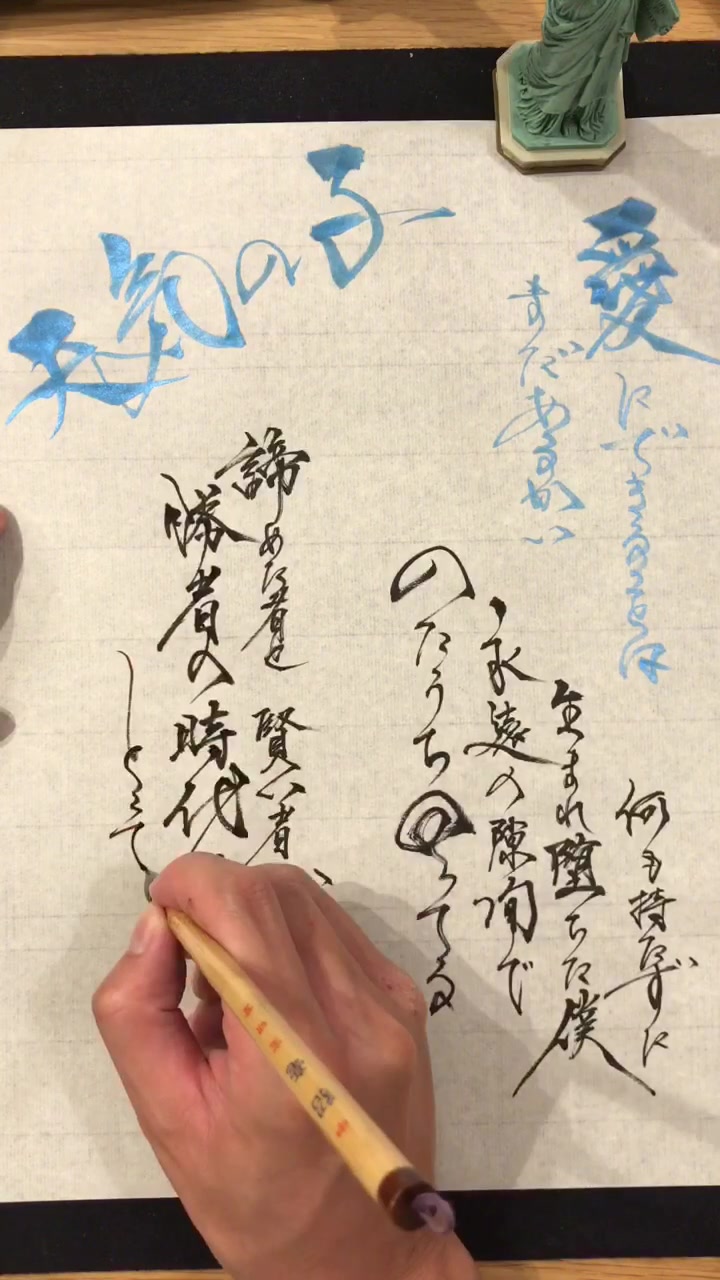 天気の子
愛にできることは
まだあるかい
何も持たずに
生まれ堕ちた僕
永遠の隙間で
のたうち回ってる
諦めた者と 賢い者
勝者の時代